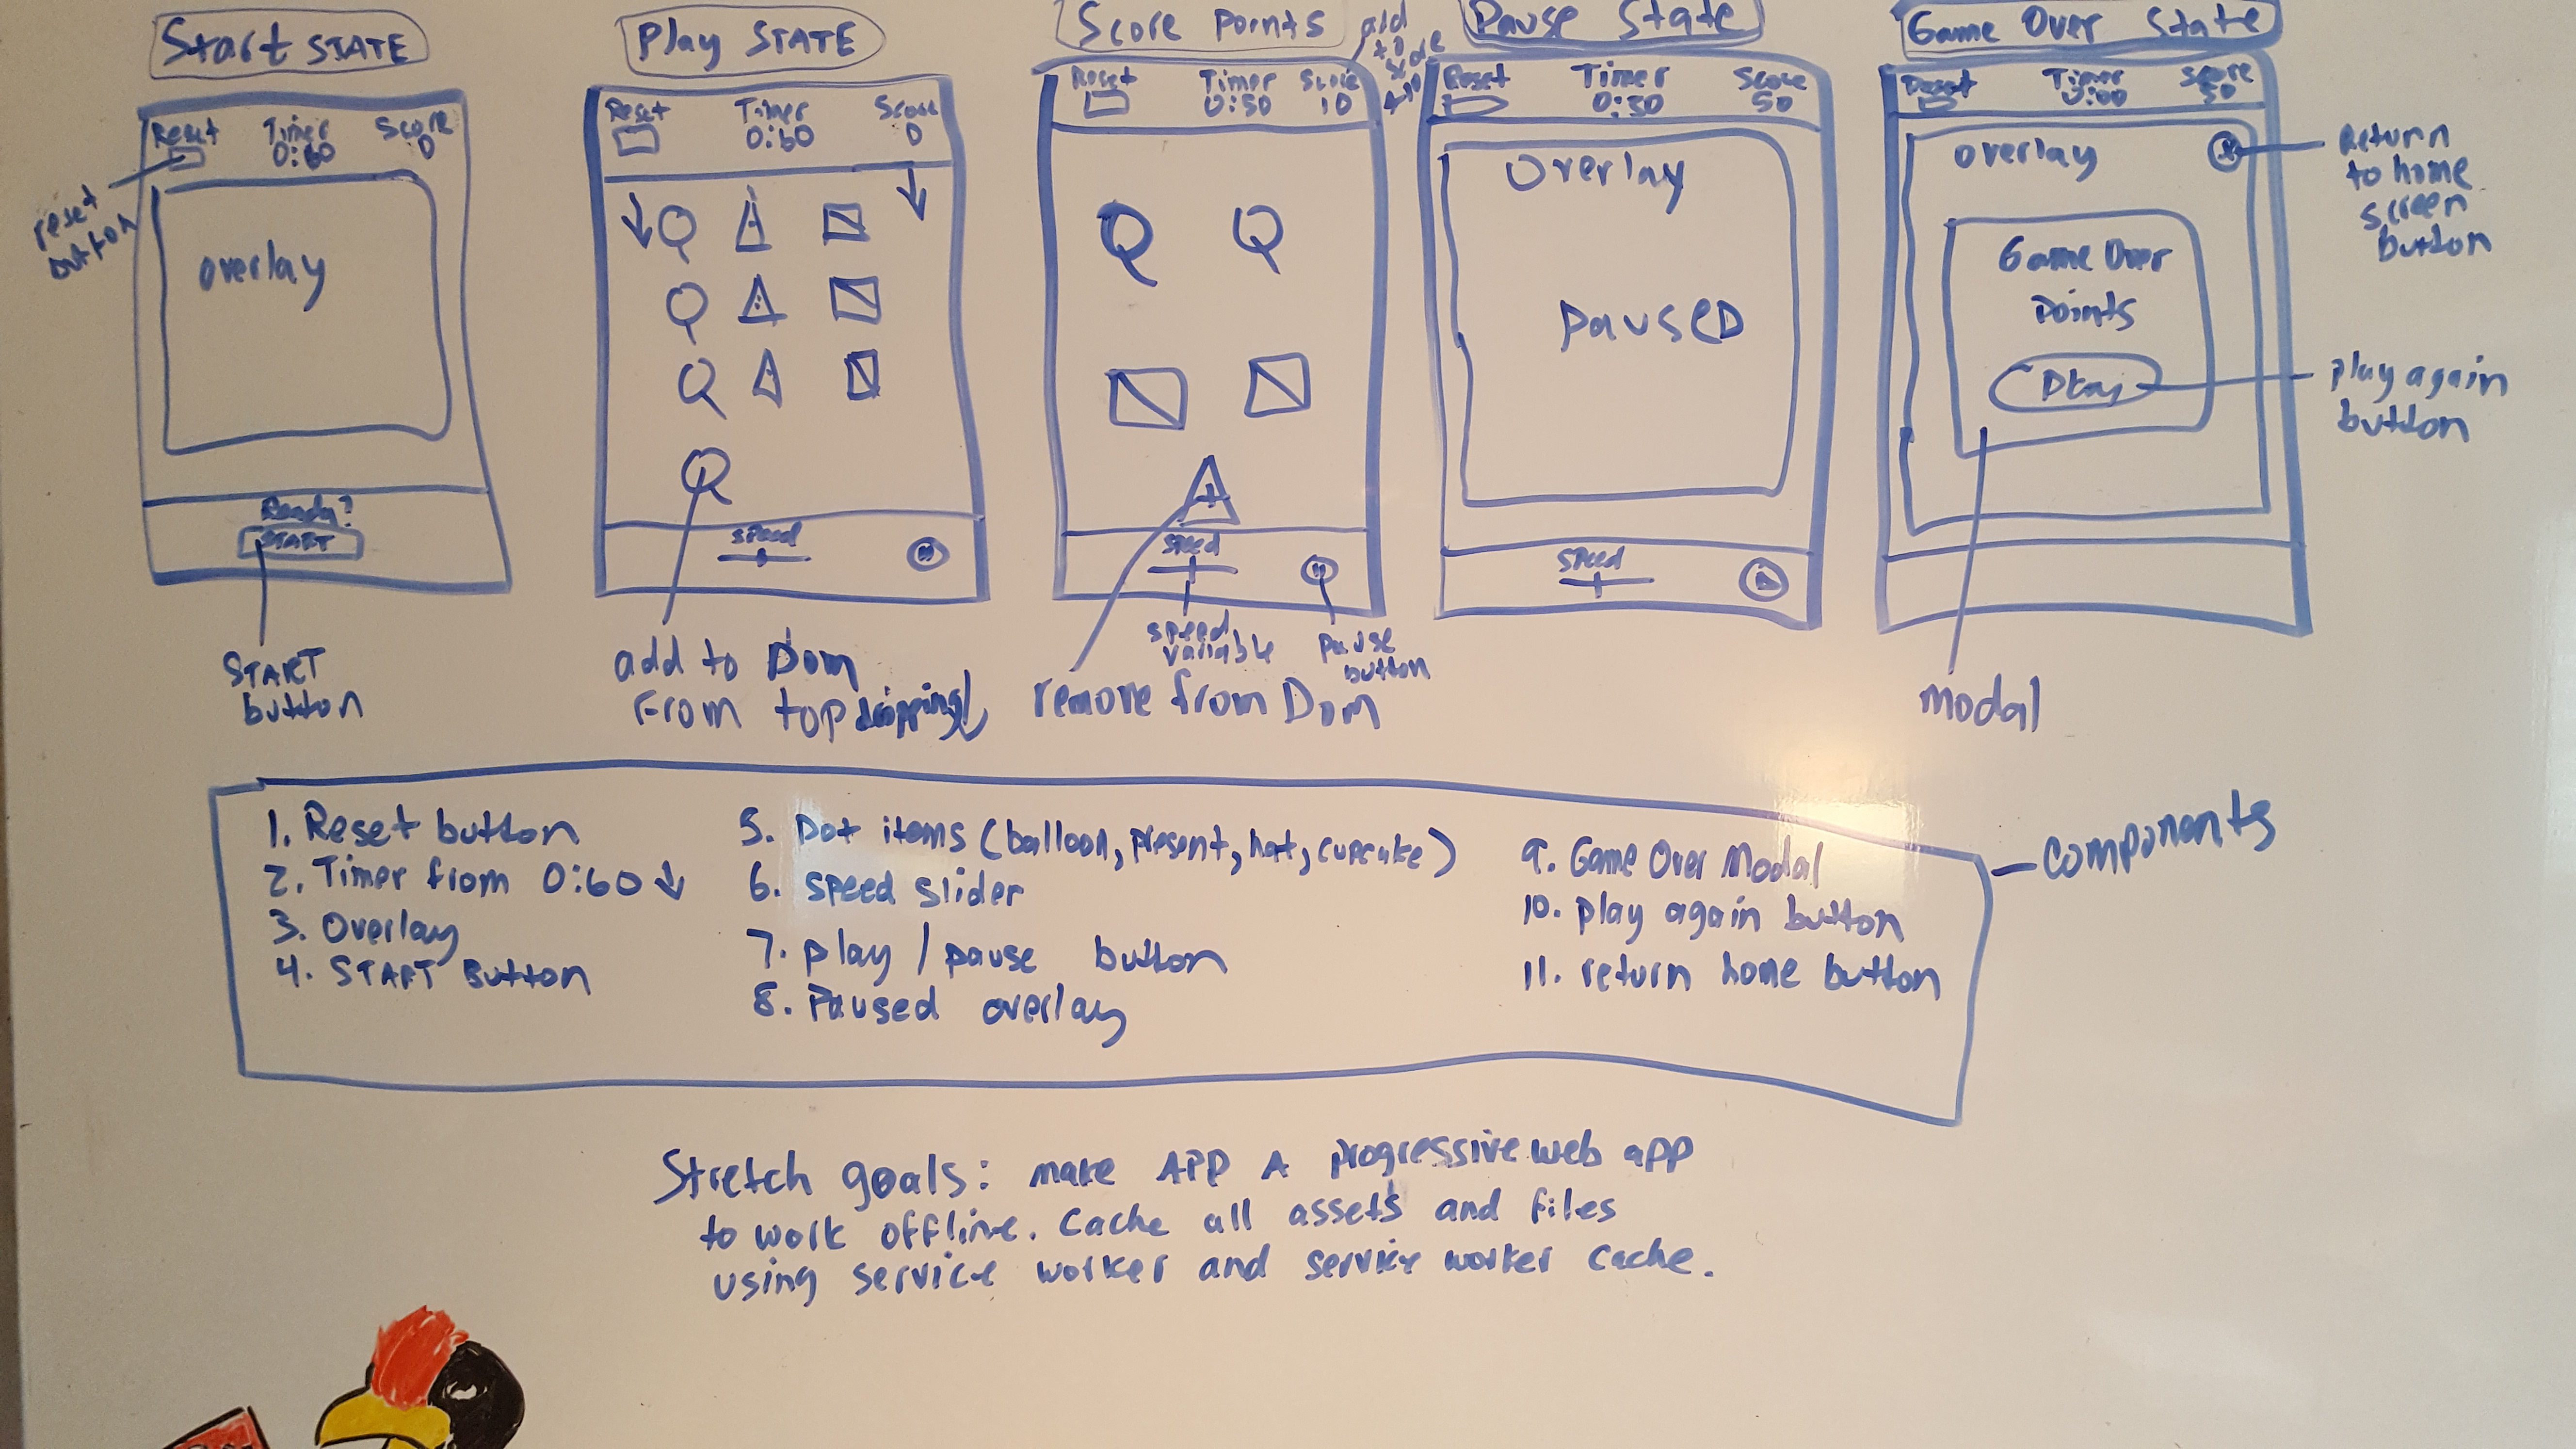 Start STATE
Reset
Timer
0:60
Score
0
reset
button
overlay
Ready?
START
START
button
Play STATE
Reset
Timer
0:60
Score
0
speed
add to Dom
From top dropping
Score Points
add
to
score
+10
Reset
Timer
0:50
Score
10
speed
speed
variable
pause
button
remove from Dom
Pause State
Reset
Timer
0:30
Score
50
Overlay
PAUSED
speed
Game Over State
Reset
Timer
0:00
Score
50
overlay
Return
to home
screen
button
Game Over
Points
Play
play again
button
modal
1. Reset button
2. Timer from 0:60 ↓
3. Overlay
4. START Button
5. Dot items (balloon, present, hat, cupcake)
6. speed slider
7. play / pause button
8. Paused overlay
9. Game Over Modal
10. play again button
11. return home button
Components
Stretch goals: make APP A progressive web app
to work offline. Cache all assets and files
using service worker and service worker cache.